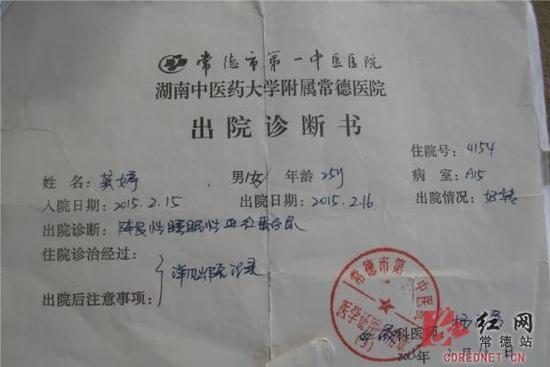 常德市第一中医医院
湖南中医药大学附属常德医院
出院诊断书
住院号：4154
姓名：龚婷 男/女 年龄25y 病室：A15
入院日期：2015.2.15 出院日期：2015.2.16 出院情况：好转
出院诊断：阵发性睡眠性血红蛋白尿
住院诊治经过：
详见出院记录
出院后注意事项：
常德市第一中医医院
医学证明
科医师：
2015年 月 日
红网
常德站
CDREDNET.CN